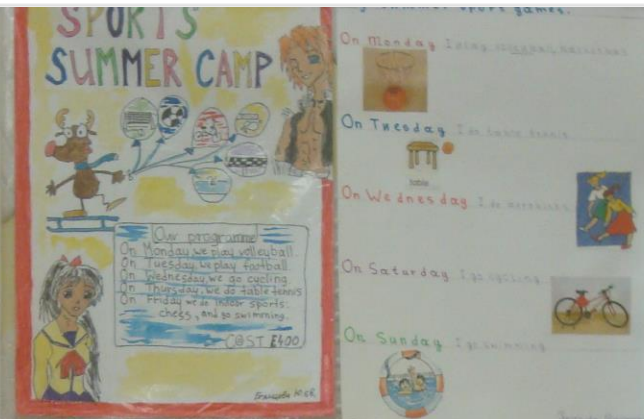 SPORTS
SUMMER CAMP
Our programme
On Monday, we play volleyball.
On Tuesday, we play football.
On Wednesday, we go cycling.
On Thursday, we do table tennis
On Friday we do indoor sports:
chess, and go swimming.
COST £400
summer sport games.
On Monday I play
On Tuesday I do table tennis
table
On Wednesday I do
On Saturday I go cycling
On Sunday I go swimming